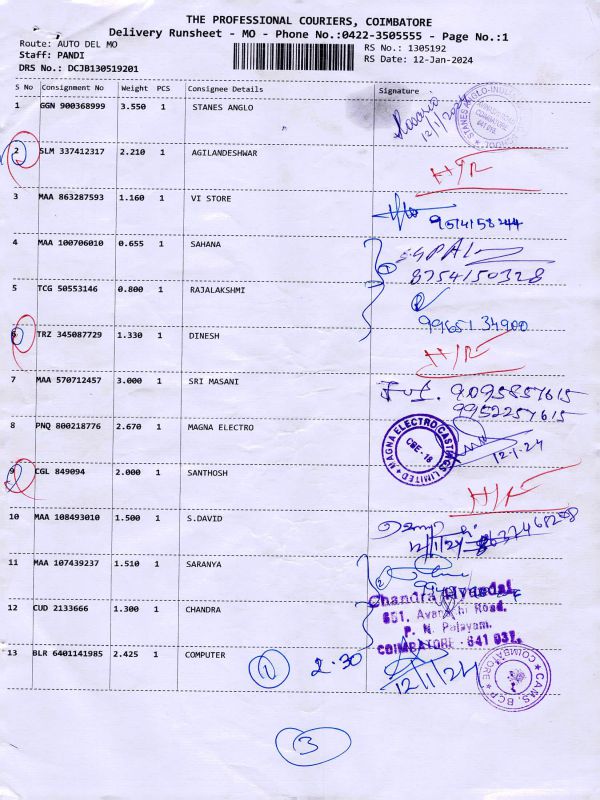 THE PROFESSIONAL COURIERS, COIMBATORE
Delivery Runsheet - MO - Phone No.:0422-3505555 - Page No.:1
Route: AUTO DEL MO
RS No.: 1305192
Staff: PANDI
RS Date: 12-Jan-2024
DRS No.: DCJB130519201
S No Consignment No Weight PCS Consignee Details Signature
1 GGN 900368999 3.550 1 STANES ANGLO
12/1/2024
2 SLM 337412317 2.210 1 AGILANDESHWAR
3 MAA 863287593 1.160 1 VI STORE
9514158244
4 MAA 100706010 0.655 1 SAHANA
8754150328
5 TCG 50553146 0.800 1 RAJALAKSHMI
9965134900
6 TRZ 345087729 1.330 1 DINESH
7 MAA 570712457 3.000 1 SRI MASANI
9095857615
9952257615
8 PNQ 800218776 2.670 1 MAGNA ELECTRO
MAGNA ELECTRO CASTINGS LIMITED
CBE-18
12-1-24
9 CGL 849094 2.000 1 SANTHOSH
10 MAA 108493010 1.500 1 S.DAVID
12/1/24
11 MAA 107439237 1.510 1 SARANYA
12 CUD 2133666 1.300 1 CHANDRA
Chandra Hyundai
651, Avanashi Road,
P. N. Palayam,
COIMBATORE - 641 037.
13 BLR 6401141985 2.425 1 COMPUTER
1 2.30
12/1/24
C.A.M.S. BCP COIMBATORE
3